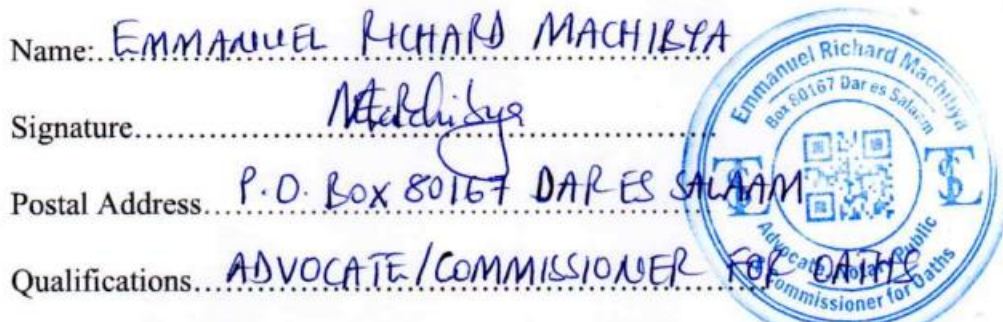 Name: EMMANUEL RICHARD MACHIBYA
Signature
Postal Address P.O. BOX 80167 DAR ES SALAAM
Qualifications ADVOCATE/COMMISSIONER FOR OATHS
Emmanuel Richard Machibya
Box 80167 Dar es Salaam
TLS
TLS
Advocate, Notary Public
& Commissioner for Oaths